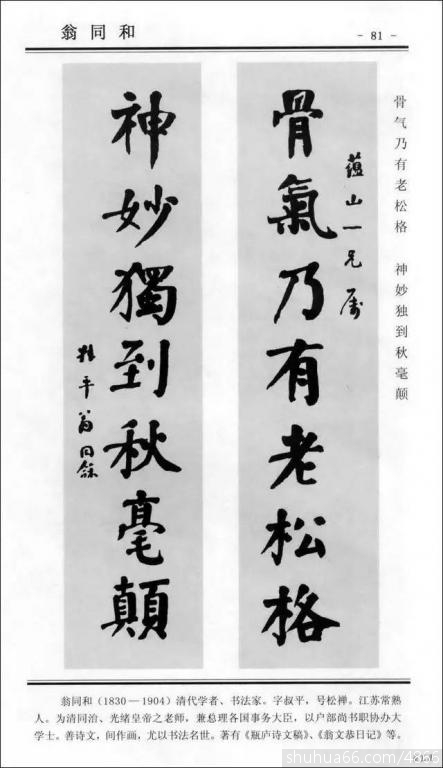 翁同和
- 81 -
骨气乃有老松格 神妙独到秋毫颠
蕴山一兄属
骨氣乃有老松格
神妙獨到秋毫顛
叔平翁同龢
翁同和(1830—1904)清代学者、书法家。字叔平,号松禅。江苏常熟
人。为清同治、光绪皇帝之老师,兼总理各国事务大臣,以户部尚书职协办大
学士。善诗文,间作画,尤以书法名世。著有《瓶庐诗文稿》、《翁文恭日记》等。
shuhua66.com/4866